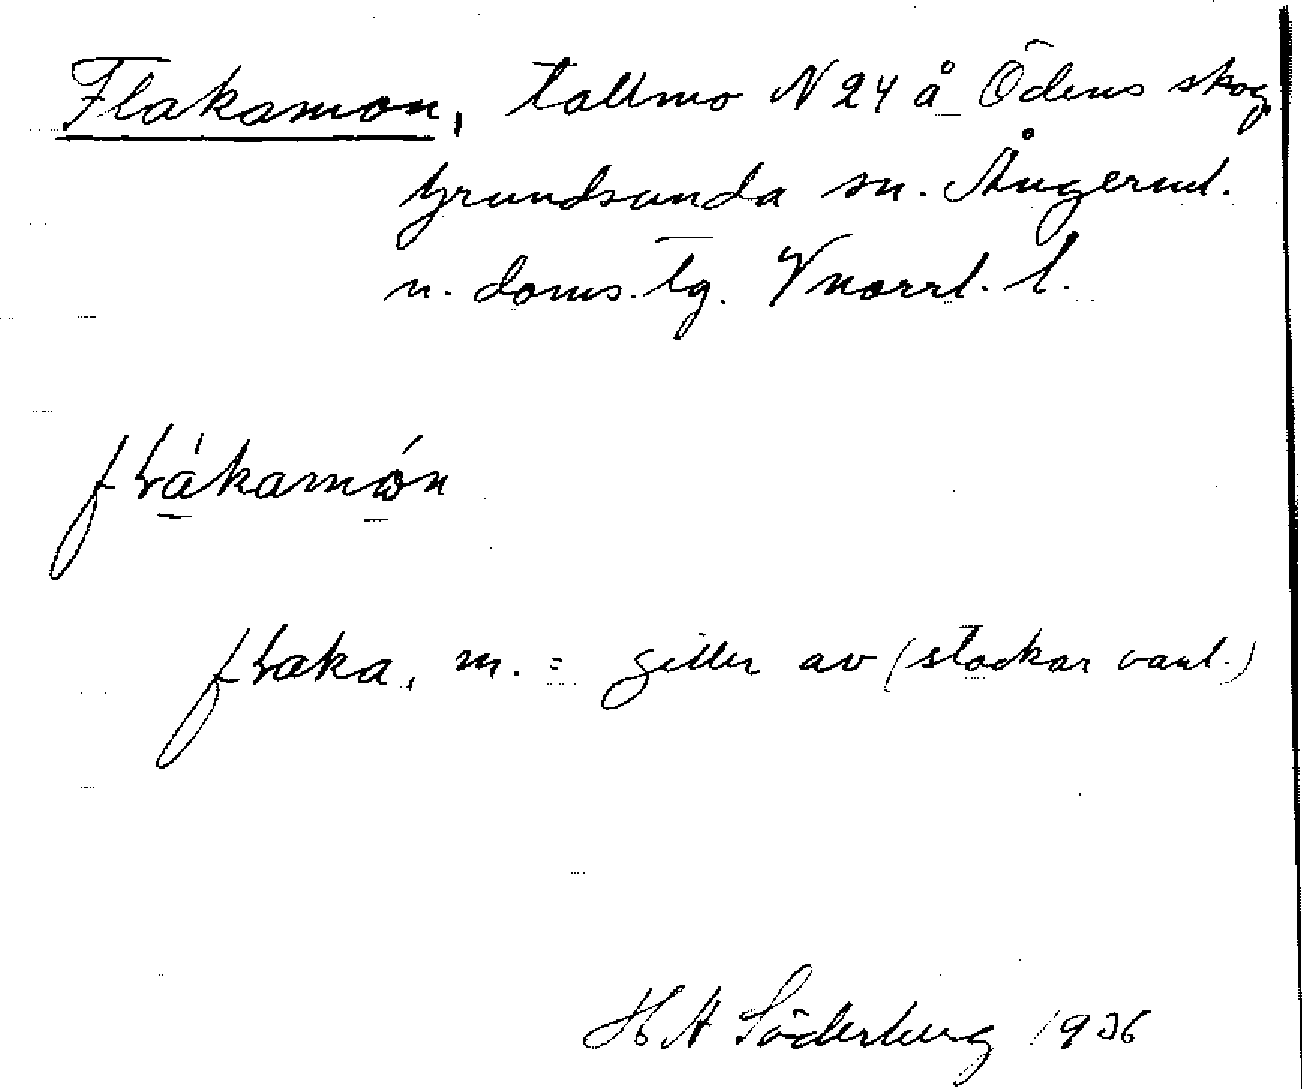 Flakamon, tallmo N 24 å Ödens skog
Grundsunda sn. Ångerml.
n. doms. lg. Vnorrl. l.
fɽákamón
fɽaka, m. = giller av (stockar vanl.)
H A Söderberg 1936